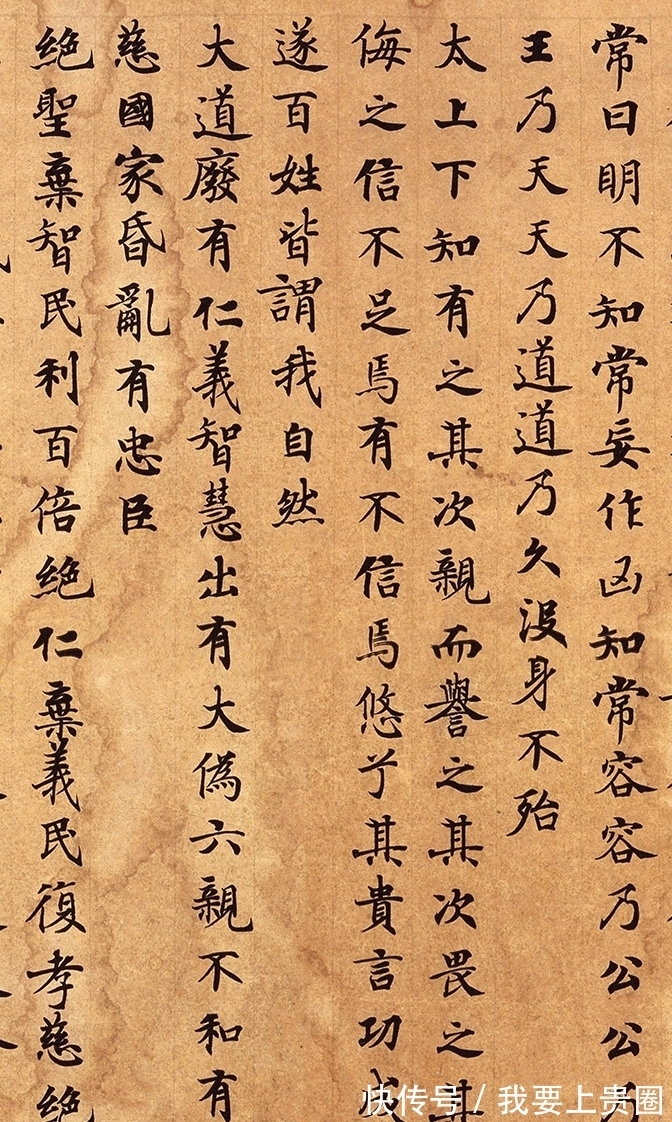 常曰明不知常妄作凶知常容容乃公公乃
王乃天天乃道道乃久沒身不殆
太上下知有之其次親而譽之其次畏之其
侮之信不足焉有不信焉悠兮其貴言功成
遂百姓皆謂我自然
大道廢有仁義智慧出有大偽六親不和有
慈國家昏亂有忠臣
絶聖棄智民利百倍絶仁棄義民復孝慈絶
快传号 / 我要上贵圈